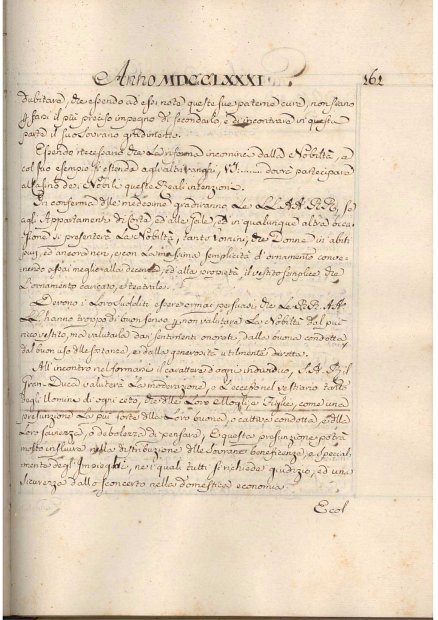 Anno MDCCLXXXI 161
dubitare, che essendo ad essi note queste sue paterne cure, non siano
p farsi il più preciso impegno di secondarlo, e di incontrare in questa
parte il suo Sovrano gradimento.
Essendo necessario che La riforma incominci dalla Nobiltà, a
col suo esempio si estenda agl'altri ranghi, VS. dovrà partecipare
al Casino dei Nobili queste Reali intenzioni.
In conferma delle medesime gradiranno Le LL. AA. RR., se
agli Appartamenti di Corte, ed alle Sale, ed in qualunque altra occa
sione si presenterà La Nobiltà, tanto Uomini, che Donne in abiti
più, ed ancora neri, e con La massima semplicità d'ornamento conve
nendo assai meglio alla decenza, ed alla proprietà il vestito semplice che
L'ornamento caricato, e teatrale.
Devono i Loro sudditi essere ormai persuasi, che Le RR. AA.
LL. hanno troppo di buon senso p non valutare La Nobiltà dal più
ricco vestito, ma valutarla dai sentimenti onorati, dalla buona condotta
dal buon uso delle sostanze, e dalla generosità utilmente diretta.
All'incontro nel formarsi il carattere d'ogni individuo, S. A. R. il
Gran-Duca valuterà La moderazione, o L'eccesso nel vestiario tanto
degli Uomini di ogni ceto, che delle Loro Mogli, e Figlie, come una
presunzione La più forte della Loro buona, o cattiva condotta, e della
Loro saviezza, o debolezza di pensare, E questa presunzione potrà
molto influire nella distribuzione delle Sovrane beneficenze, e special
mente degl'Impieghi, nei quali tutti si richiede giudizio, ed una
sicurezza dallo sconcerto nella domestica economia
Ecol